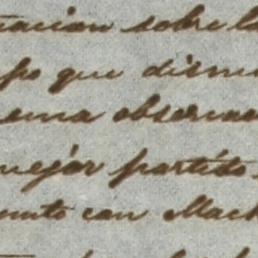 racion sobre la
po que dismi
ema observa
mejor partido.
unto con Mack